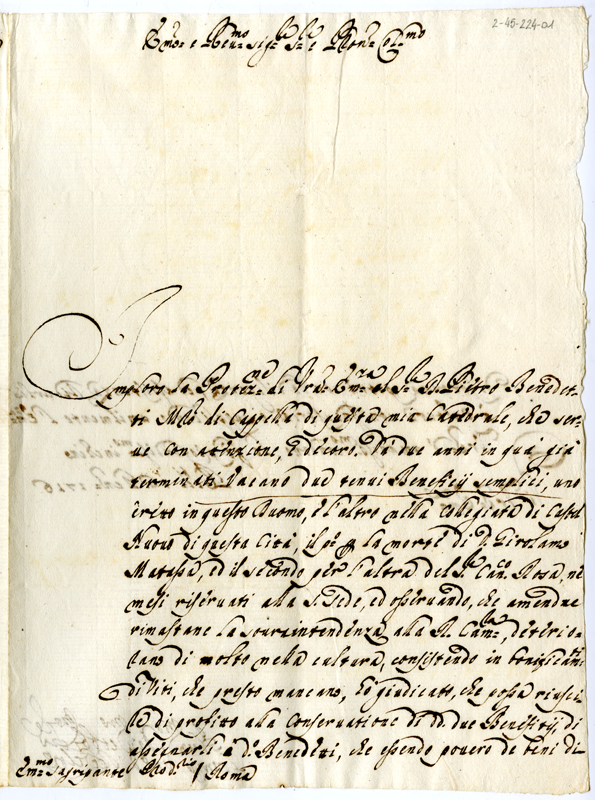 2-45-224-01
Em.mo e Reu.mo Sig.re S.re e Pron.e Col.mo
Imploro la Protez.ne di Vra Em.za al S.r D. Pietro Benedet-
ti M.ro di Cappella di questa mia Catedrale, che ser-
ue con attenzione, e decoro. Da due anni in quà già
terminati Vacano due tenui Beneficij semplici, uno
eretto in questo Duomo, e l'altro nella Collegiata di Castel
Nuouo di questa Città, il p.o la morte di D. Girolamo
Matassa, ed il secondo per l'altra del S.r Can.co Rosa, ne
mesi riseruati alla S. Sede, ed osseruando, che amendue
rimastane la sourintendenza alla R. Cam.ra, deterio-
rano di molto nella cultura, consistendo in bonificam.ti
di Viti, che presto mancano, hò giudicato, che possa riusci-
re di profitto alla Conseruatione di dd. due Beneficij, di
assegnarli à d.o Benedetti, che essendo pouero de beni di
Em.mo Sagripante Prod.rio / Roma